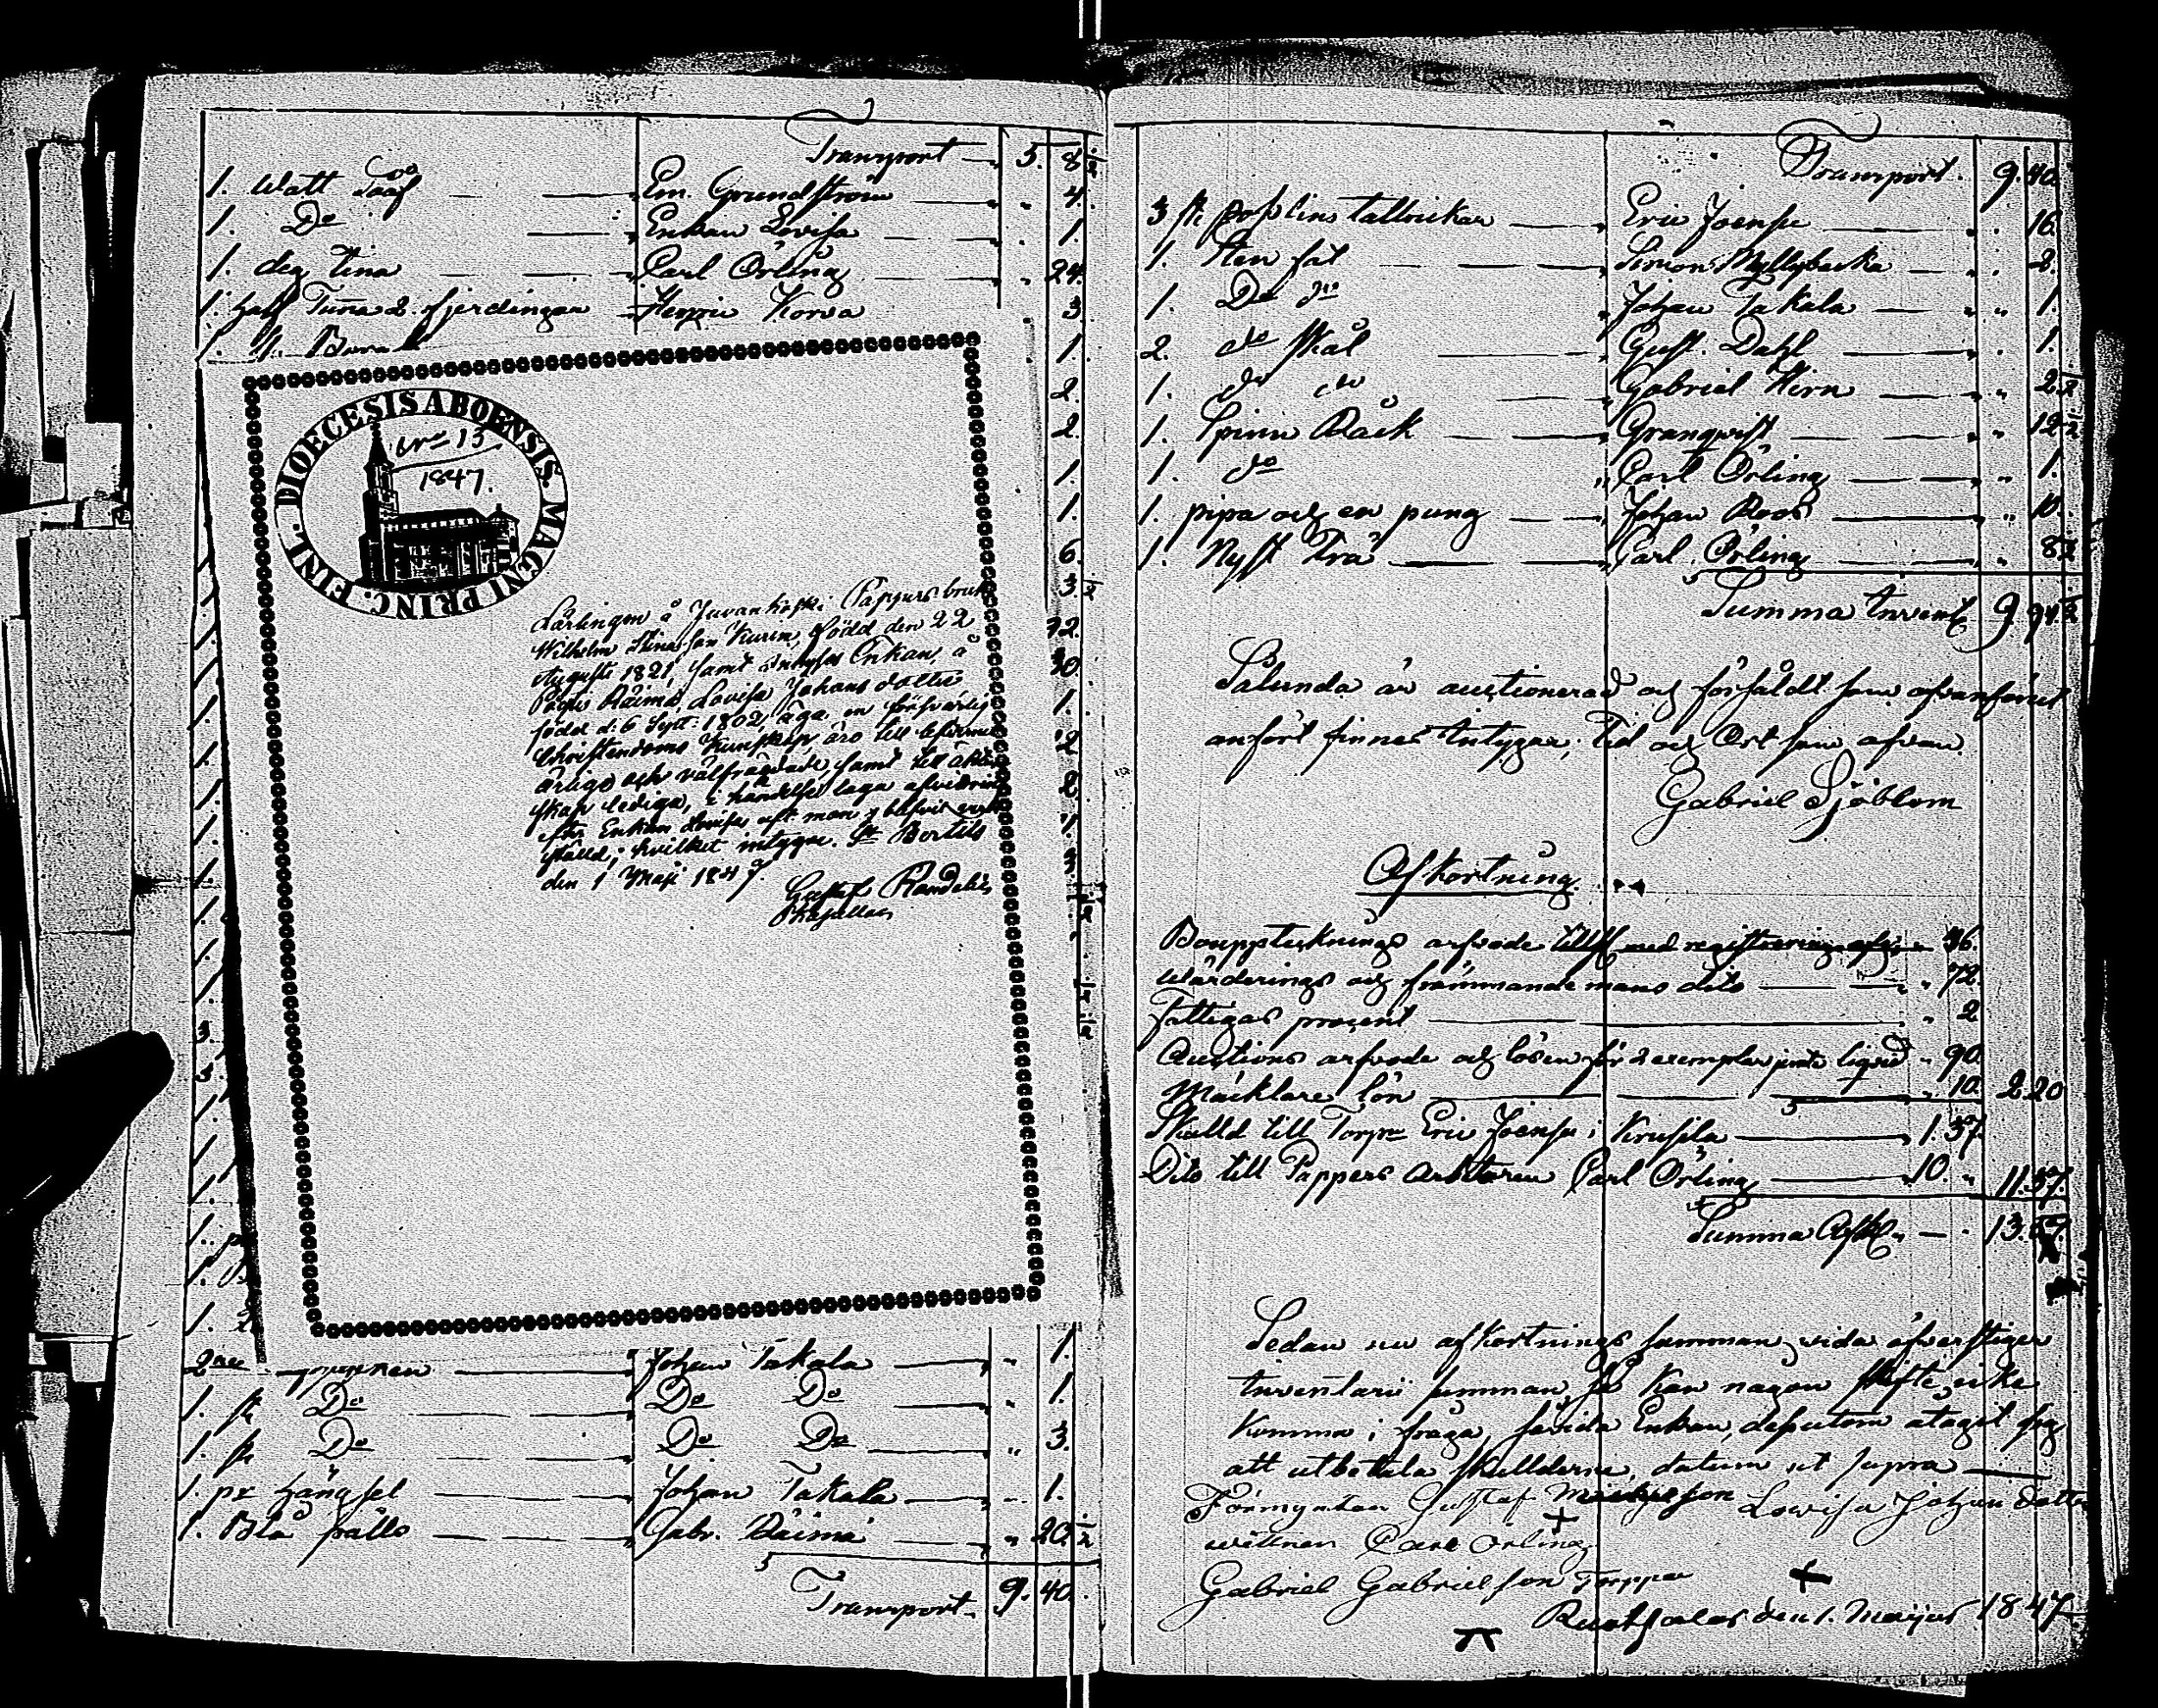 Transport 5. 8 1/2
1. Watt Sää Em. Grundström " 4.
1. Do Enkan Lovisa " 1.
1. deg tina Carl Örling " 24.
1. half Tuna 2. fjerdingar Henric Korva 3.
1. 1.
2.
2.
1.
1.
6.
3 1/2
72.
30.
1.
2
2
DIOECESIS ABOENSIS MAGNI PRINC. FINL.
Nro 13
1847.
Lärlingen å Juvankoski Pappersbruk
Wilhelm Kurin, född den 22
Augusti 1821, samt Enkan, å
Räimä, Lovisa Johans dotter
född d: 6 Sept: 1802, äga en försvarlig
Christendoms Kunskap, äro till lefverne
ärlige och välfrägdade, samt till äkten
skap lediga, i händelse laga afvittring
efter Enkan Lovisas aflne man j blifvit
ställd; hvilket intygar. St Bertils
den 1 Maji 1847.
Gustaf Randelin
Kapellan
2ne Johan Takala " 1.
1. st Do Do Do " 1.
1. st Do Do Do " 3.
1. pr hängsel Johan Takala " 1.
1. Blå Gabr. Räimä " 20 1/2
Transport 9. 40.
Transport. 9. 40.
3 st posslins tallrickar Eric Joensu " 16.
1. Sten fat Simon Myllybacka " 2.
1. Do do Johan Takala " 1.
2. do skål Gust. Dahl " 1.
1. do do Gabriel Hirn " 2 1/2
1. Spinn Råck Granqvist " 12 1/2
1. do Carl Örling " 1.
1. pipa och en pung Johan Roos " 10.
1. Nyst Trä Carl Örling " 8 1/2
Summa Invent 9. 94 1/2
Sålunda är auctionerad och försåldt som ofvanföre
anfört finnes intygar; Tid och Ort som ofvan.
Gabriel Sjöblom
Afkortning.
Bouppteknings arfvode med registrering " 46.
Wärderings och främmande mans dito " 72.
Fattigas procent " 2
Auctions arfvode och lösen för 2 exemplar " 90.
Mäcklare lön " 10. 2.20
Skulld till Torpn Eric Joensu i Krusila 1. 37.
Dito till Pappers arbetaren Carl Örling 10. " 11.37.
Summa Afk. 13.57.
Sedan nu afkortnings summan vida öfverstiger
Inventarii summan, så kan någon skifte icke
komma i fråga, Enkan, dessutom åtagit sig
att utbetala skullderne, datum ut supra
Förmyntare Gustaf Lowisa Johans dotter
wittnen Carl Örling
Gabriel Gabrielson Torppa
den 1. Maijus 1847